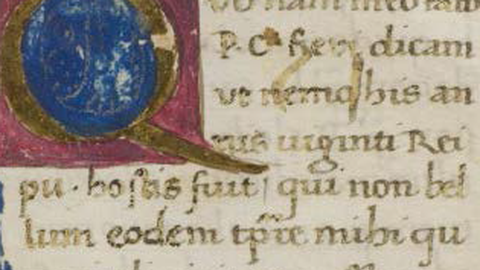 Quo nam meo fato
P. C. fieri dicam
ut nemo his an
nis uiginti Rei
pu. hostis fuit qui non bel
lum eodem tp̄re mihi qu